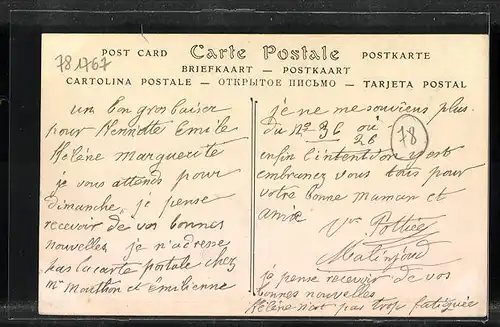 781767
POST CARD Carte Postale POSTKARTE
BRIEFKAART — POSTKAART
CARTOLINA POSTALE — ОТКРЫТОЕ ПИСЬМО — TARJETA POSTAL
un bon gros baiser
pour Henriette Emile
Hélène Marguerite
je vous attends pour
dimanche, je pense
recevoir de vos bonnes
nouvelles je n'adresse
pas la carte postale chez
Mr Mouthon et emilienne
je ne me souviens plus
du No 36 où
26
78
enfin l'intention y est
embrassez vous tous pour
votre bonne Maman et
amie
Vve Pottiée
je pense recevoir de vos
bonnes nouvelles
Hélène n'est pas trop fatiguée